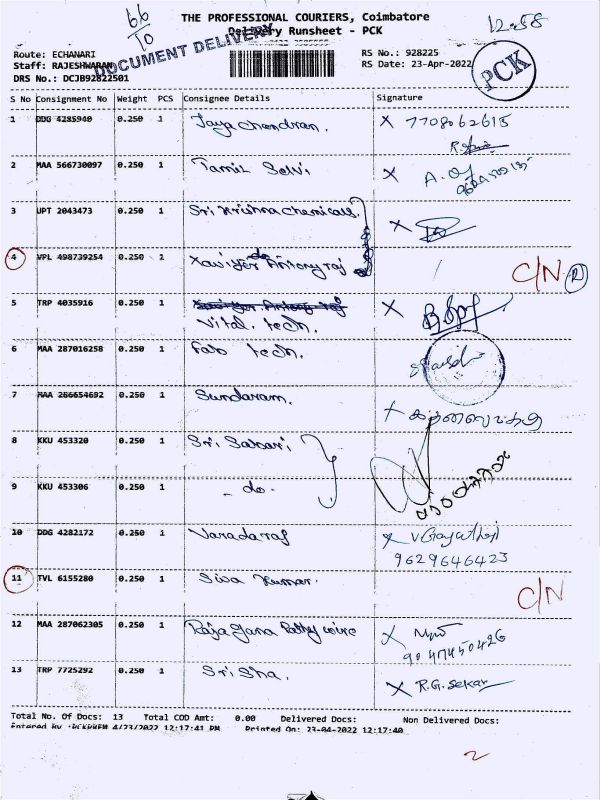 66
TO
12:58
THE PROFESSIONAL COURIERS, Coimbatore
Delivery Runsheet - PCK
DOCUMENT DELIVERY
Route: ECHANARI
Staff: RAJESHWARAN
DRS No.: DCJB92822501
RS No.: 928225
RS Date: 23-Apr-2022
PCK
S No Consignment No Weight PCS Consignee Details Signature
1 DDG 4285940 0.250 1 Jaya chandran. X 7708062615
2 MAA 566730097 0.250 1 Tamil Selvi X
3 UPT 2043473 0.250 1 Sri Krishna chemicals. X
4 VPL 498739254 0.250 1 Antony raj C/N R
5 TRP 4035916 0.250 1 X
Vital. tech.
6 MAA 287016258 0.250 1 Fab tech.
7 MAA 286654692 0.250 1 Sundaram.
8 KKU 453320 0.250 1 Sri
9 KKU 453306 0.250 1 - do -
10 DDG 4282172 0.250 1 Varadaraj X
9629646423
11 TVL 6155280 0.250 1 Siva Kumar. C/N
12 MAA 287062305 0.250 1 Raja X
9047450426
13 TRP 7725292 0.250 1 Sri Sha. X R.G. Sekar
Total No. Of Docs: 13 Total COD Amt: 0.00 Delivered Docs: Non Delivered Docs:
Entered By : 4/23/2022 12:17:41 PM Printed On: 23-04-2022 12:17:40
2